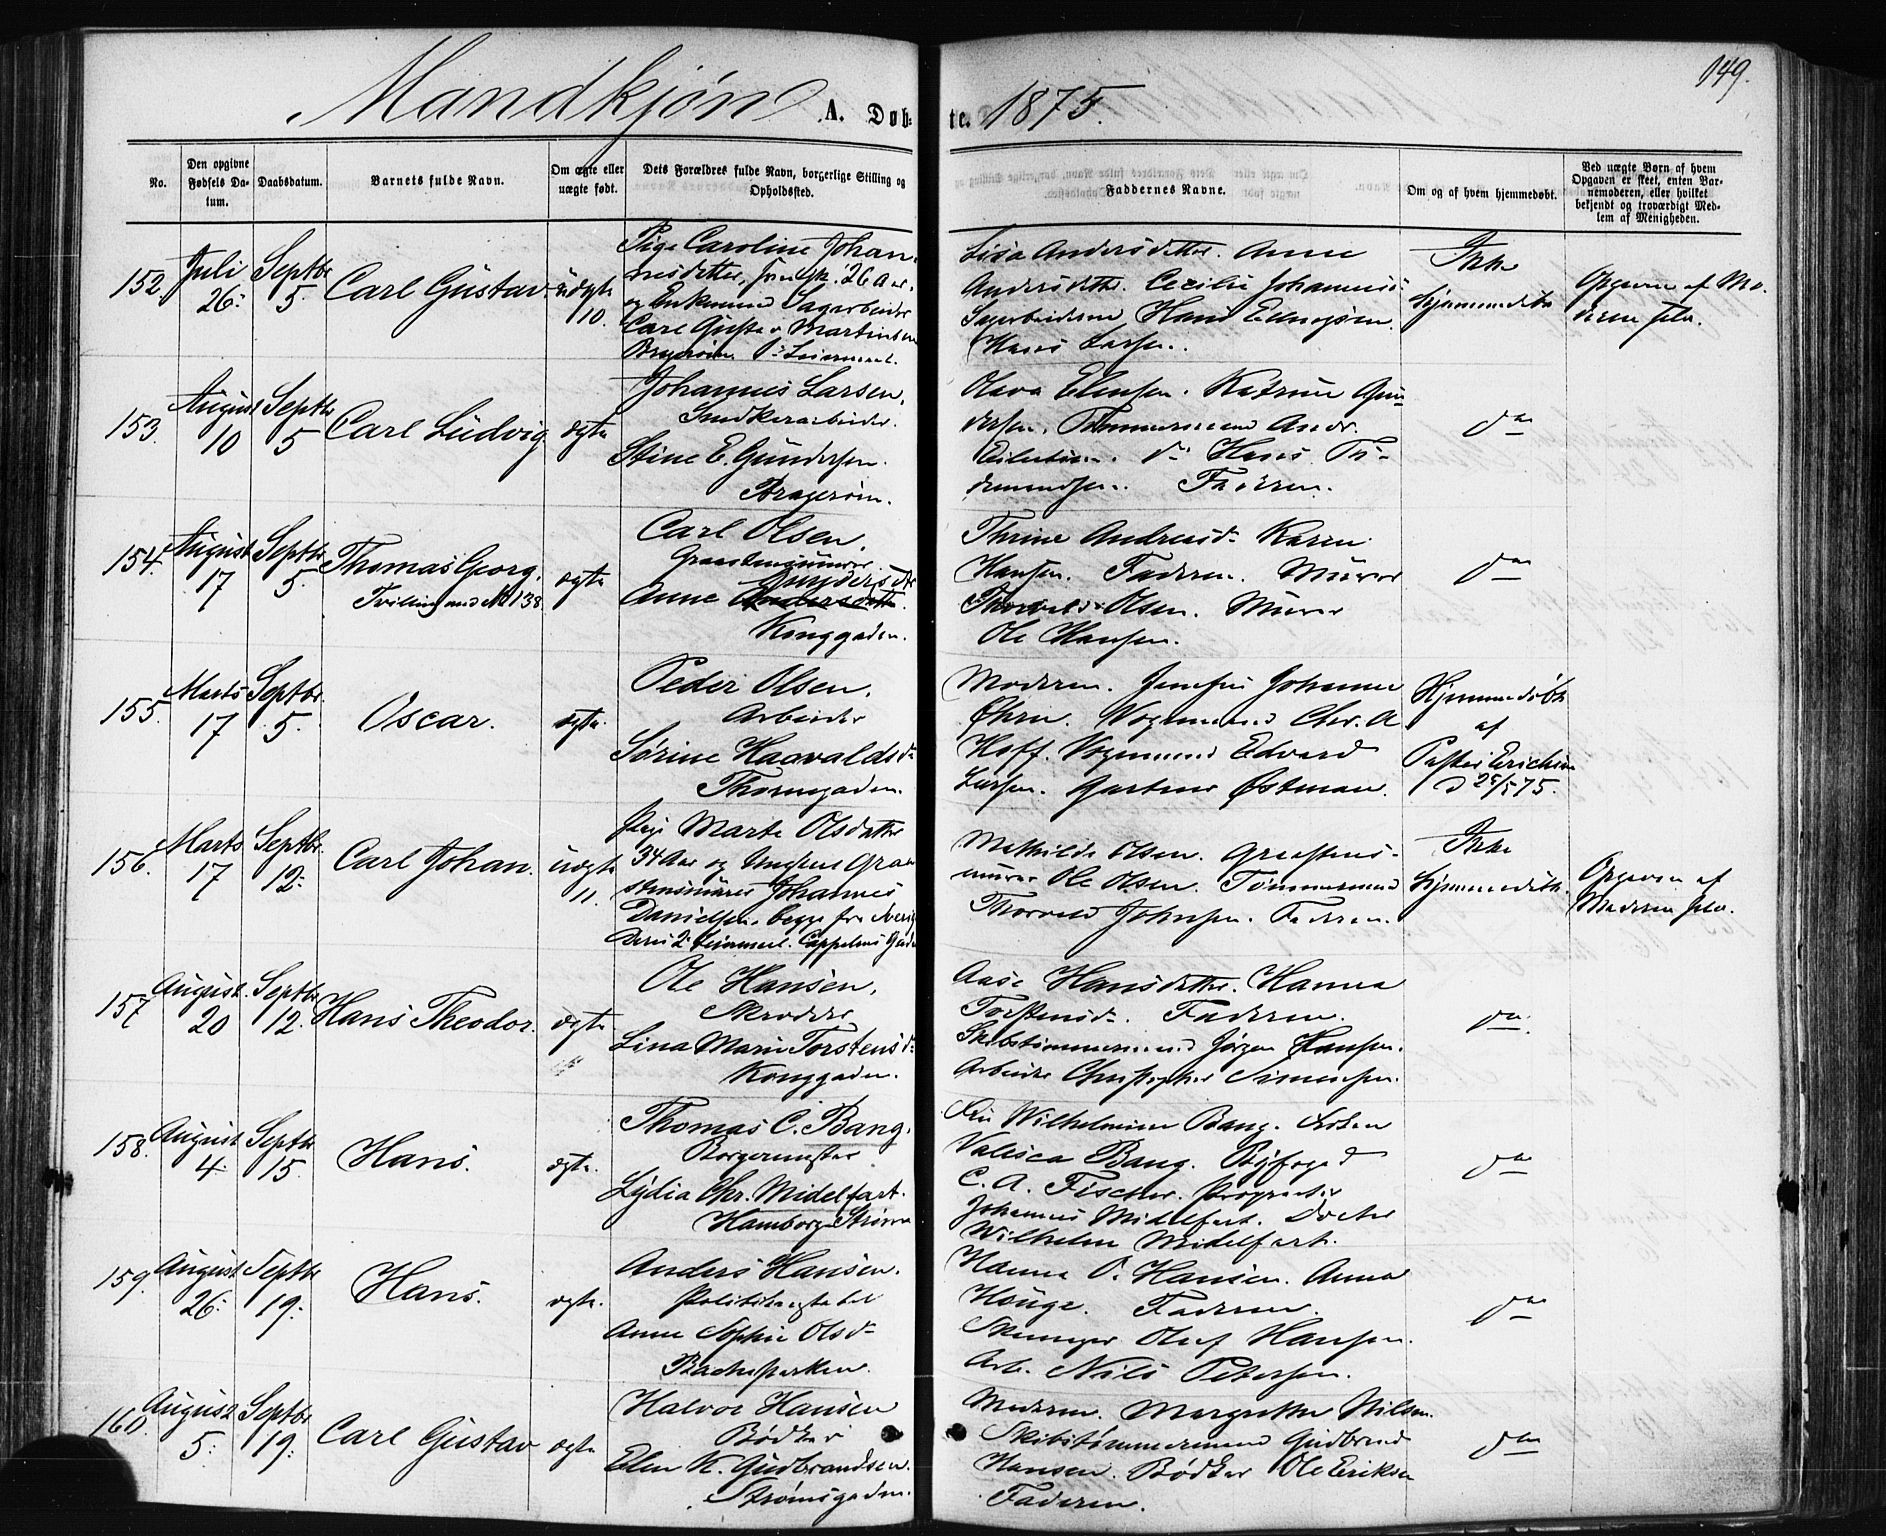 Mandkjøn A. Døbte. 1875.
149.
No.
Den opgivne Fødsels Datum.
Daabsdatum.
Barnets fulde Navn.
Om ægte eller uægte født.
Dets Forældres fulde Navn, borgerlige Stilling og Opholdsted.
Faddernes Navne.
Om og af hvem hjemmedøbt.
Ved uægte Børn af hvem Opgaven er skeet, enten Barnemoderen, eller hvilket bekjendt og troværdigt Medlem af Menigheden.
152. Juli 26. Septbr 5. Carl Gustav uægte 10.
Pige Caroline Johan-
nesdatter, 26 Aar
og Sagarbeider
Carl Gustav Martinsen
Lisa Andersdatter. Anne
Andersdtr. Cecilie Johannes-
Hans Larsen.
Ikke
hjemmedøbt
Opgaven af Mo-
deren selv.
153. August 10 Septbr 5 Carl Ludvig ægte
Johannes Larsen,
Snedkerarbeider.
Stine E. Gundersen.
Bragerøen.
Katrine Gun-
dersen. Tømmermand Andr.
Eilertsen. do Hans Ti-
demandsen. Faderen.
do
154. August 17 Septbr 5. Thomas Georg. ægte
Tvilling med No 138
Carl Olsen,
Graastensmurer.
Gundersdtr
Anne Andersdatter.
Konggaden.
Thrine Andreasd. Karen
Hansen. Faderen. Murer
Thorvald Olsen. Murer
Ole Hansen.
do
155. Marts 17 Septbr. 5. Oscar. ægte.
Peder Olsen.
Arbeider
Sørine Haavaldsd.
Thornegaden.
Moderen. Johanne
Vognmand Chr. A
Hoff. Vognmand Edvard
Larsen. Gartner Østman.
Hjemmedøbt
af
Pastor Erichsen
d 25/5 75.
156. Marts 17 Septbr. 12. Carl Johan. uægte 11.
Pige Marte Olsdatter
34 Aar og Ungkarl Graa-
stensmurer Johannes
Danielsen, begge fra Sverig
Deres 2 Leiermaal. Cappelens Gade
Mathilde Olsen. Graastens-
murer Ole Olsen. Tømmermand
Thorvald Johnsen. Faderen.
Ikke
hjemmedøbt.
Opgaven af
Moderen selv.
157 August 20 Septbr 12. Hans Theodor. ægte
Ole Hansen,
Skrædder
Lina Marie Torstensd.
Konggaden.
Aase Hansdatter. Hanna
Torstensd. Faderen.
Skibstømmermand Jørgen Hansen.
Arbeider Christopher Simensen.
do
158. August 4. Septbr 15. Hans. ægte.
Thomas C. Bang,
Borgermester
Lydia Chr. Midelfart.
Hamborgstrøm
Fru Wilhelmine Bang. Frøken
Valesca Bang. Byfoged
C. A. Fischer.
Johannes Midelfart. Doctor
Wilhelm Midelfart.
do
159. August 26. Septbr 19. Hans. ægte.
Anders Hansen.
Politibetjent
Anne Sophie Olsd.
Hanna O. Hansen. Anna
Houge. Faderen.
Oluf Hansen.
Arb. Nils Petersen.
do
160. August 5. Septbr 19. Carl Gustav ægte
Halvor Hansen
Bødker
Elen K. Gudbrandsen.
Strømsgaden.
Moderen. Margrethe Nilsen.
Skibstømmermand Gudbrand
Hansen. Bødker Ole Eriksen
Faderen.
do